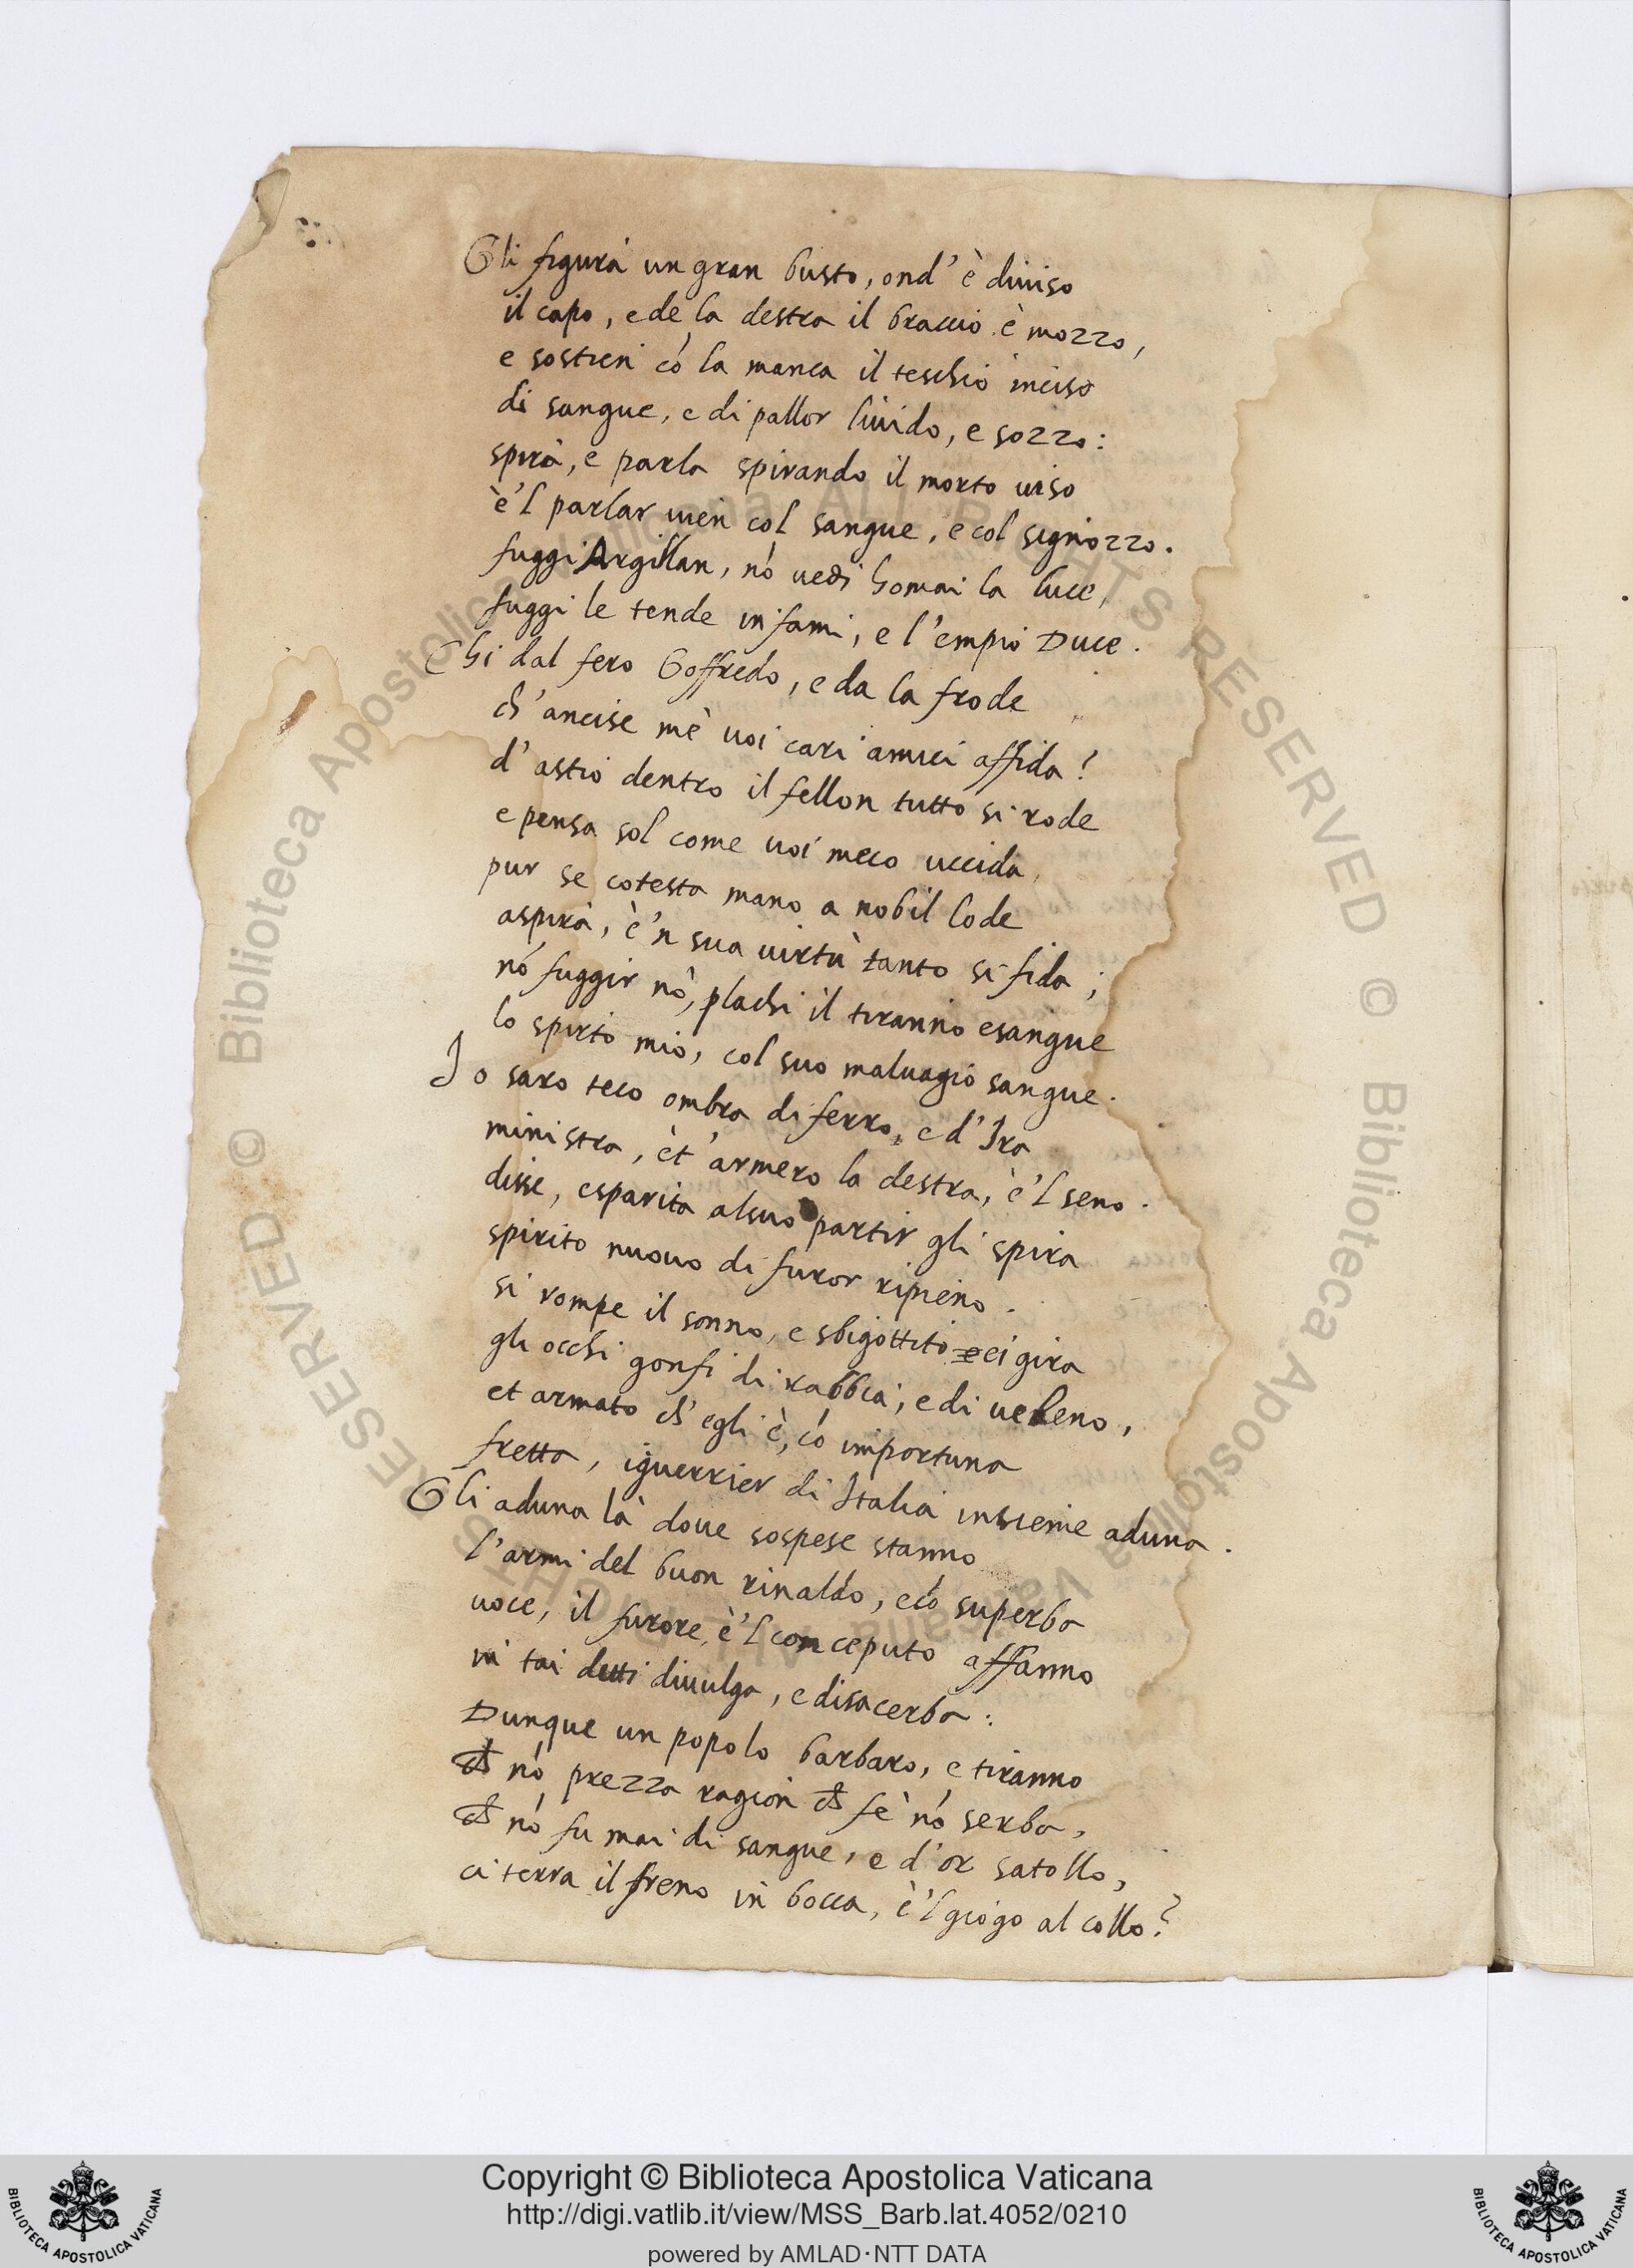 Gli figura un gran busto, ond' è diuiso
il capo, e de la destra il braccio è mozzo,
e sostien có la manca il teschio inciso
di sangue, e di pallor liuido, e sozzo:
spira, e parla spirando il morto uiso
è'l parlar uien col sangue, e col signozzo.
fuggi Argillan, nó uedi homai la luce,
fuggi le tende infami, e l'empio Duce.
Chi dal fero Goffredo, e da la frode
ch'ancise mè uoi cari amici affida?
d'astio dentro il fellon tutto si rode
e pensa sol come uoi meco uccida,
pur se cotesta mano a nobil lode
aspira, è'n sua uirtù tanto si fida;
nó fuggir nò, plachi il tiranno esangue
lo spirto mio, col suo maluagio sangue.
Io saro teco ombra di ferro, e d'Ira
ministra, èt armero la destra, è'l seno.
disse, esparita alsuo partir gli spira
spirito nuouo di furor ripieno.
si rompe il sonno, e sbigottito ei gira
gli occhi gonfi di rabbia, e di ueleno,
et armato ch'egli è, có importuna
fretta, iguerrier di Italia insieme aduna.
Gli aduna là doue sospese stanno
l'armi del buon rinaldo, ecó superba
uoce, il furore, è'l conceputo affanno
in tai detti diuulga, e disacerba:
Dunque un popolo barbaro, e tiranno
ch nó prezza ragion ch fè nó serba,
ch nó fu mai di sangue, e d'or satollo,
ci terra il freno in bocca, è'l giogo al collo?
Copyright © Biblioteca Apostolica Vaticana
http://digi.vatlib.it/view/MSS_Barb.lat.4052/0210
powered by AMLAD·NTT DATA
BIBLIOTECA APOSTOLICA VATICANA
BIBLIOTECA APOSTOLICA VATICANA
© Biblioteca Apostolica Vaticana ALL RIGHTS RESERVED © Biblioteca Apostolica Vaticana ALL RIGHTS RESERVED